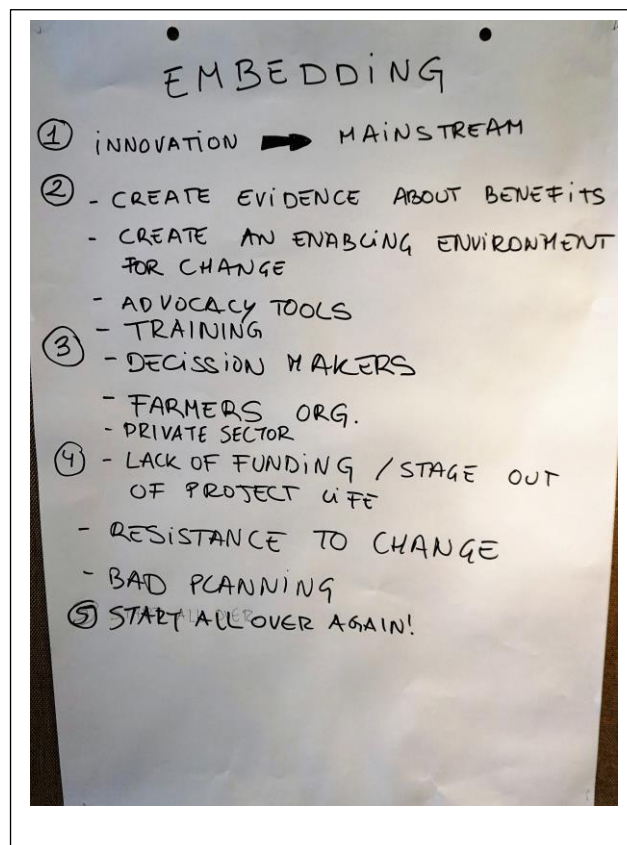 EMBEDDiNG
① iNNOVATiON ➡ MAiNSTREAM
② - CREATE EViDENCE ABOUT BENEFiTS
- CREATE AN ENABLiNG ENViRONMENT
FOR CHANGE
- ADVOCACY TOOLS
- TRAINING
③ - DECiSSiON MAKERS
- FARMERS ORG.
- PRIVATE SECTOR
④ - LACK OF FUNDiNG / STAGE OUT
OF PROJECT LiFE
- RESiSTANCE TO CHANGE
- BAD PLANNiNG
⑤ START ALL OVER AGAIN!